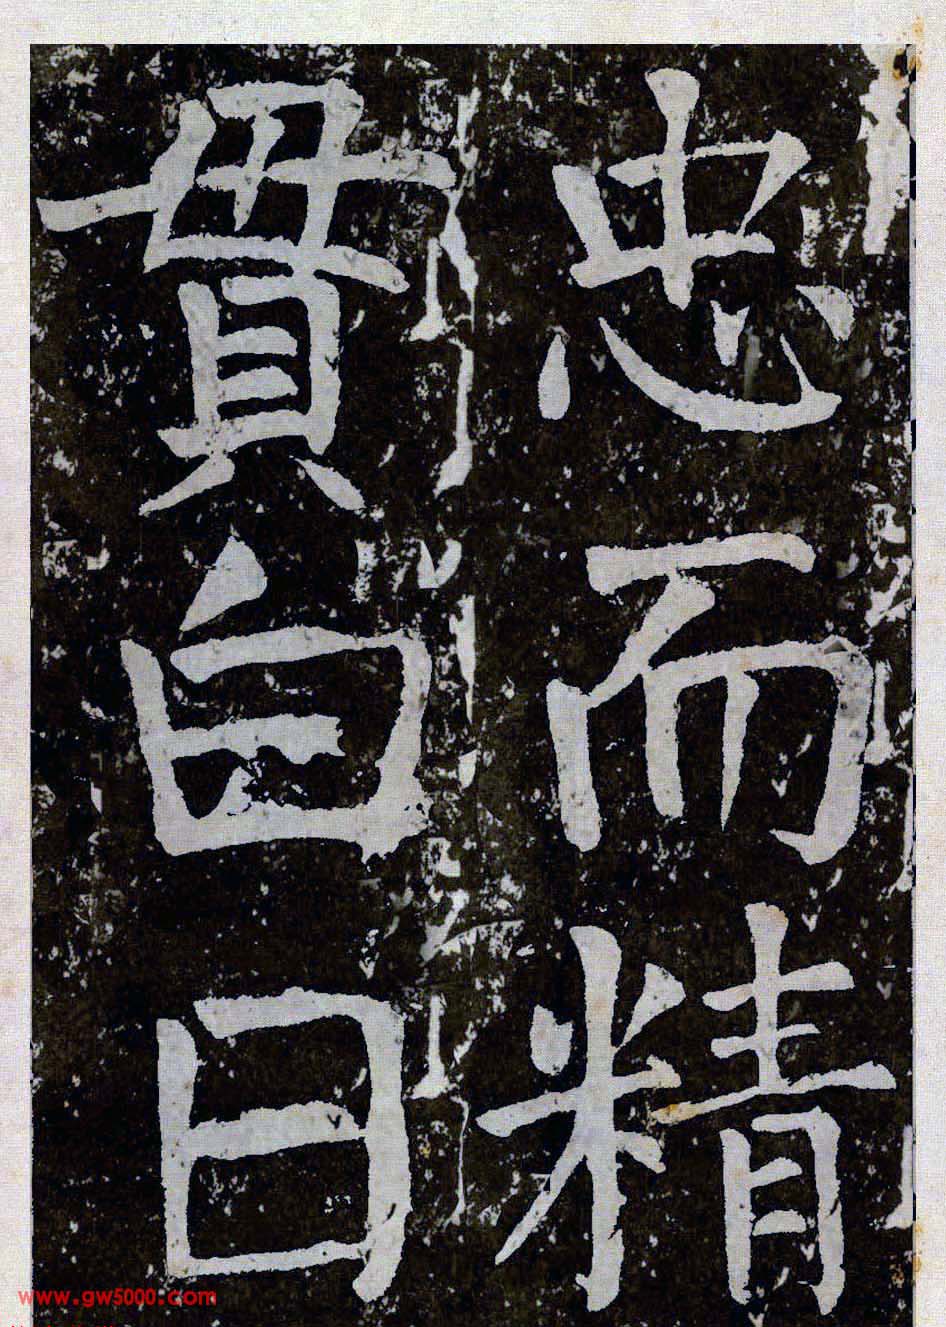 忠而精
貫白日
www.gw5000.com